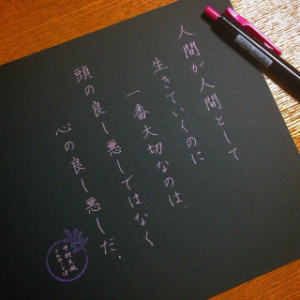 人間が人間として
生きていくのに
一番大切なのは、
頭の良し悪しではなく
心の良し悪しだ。